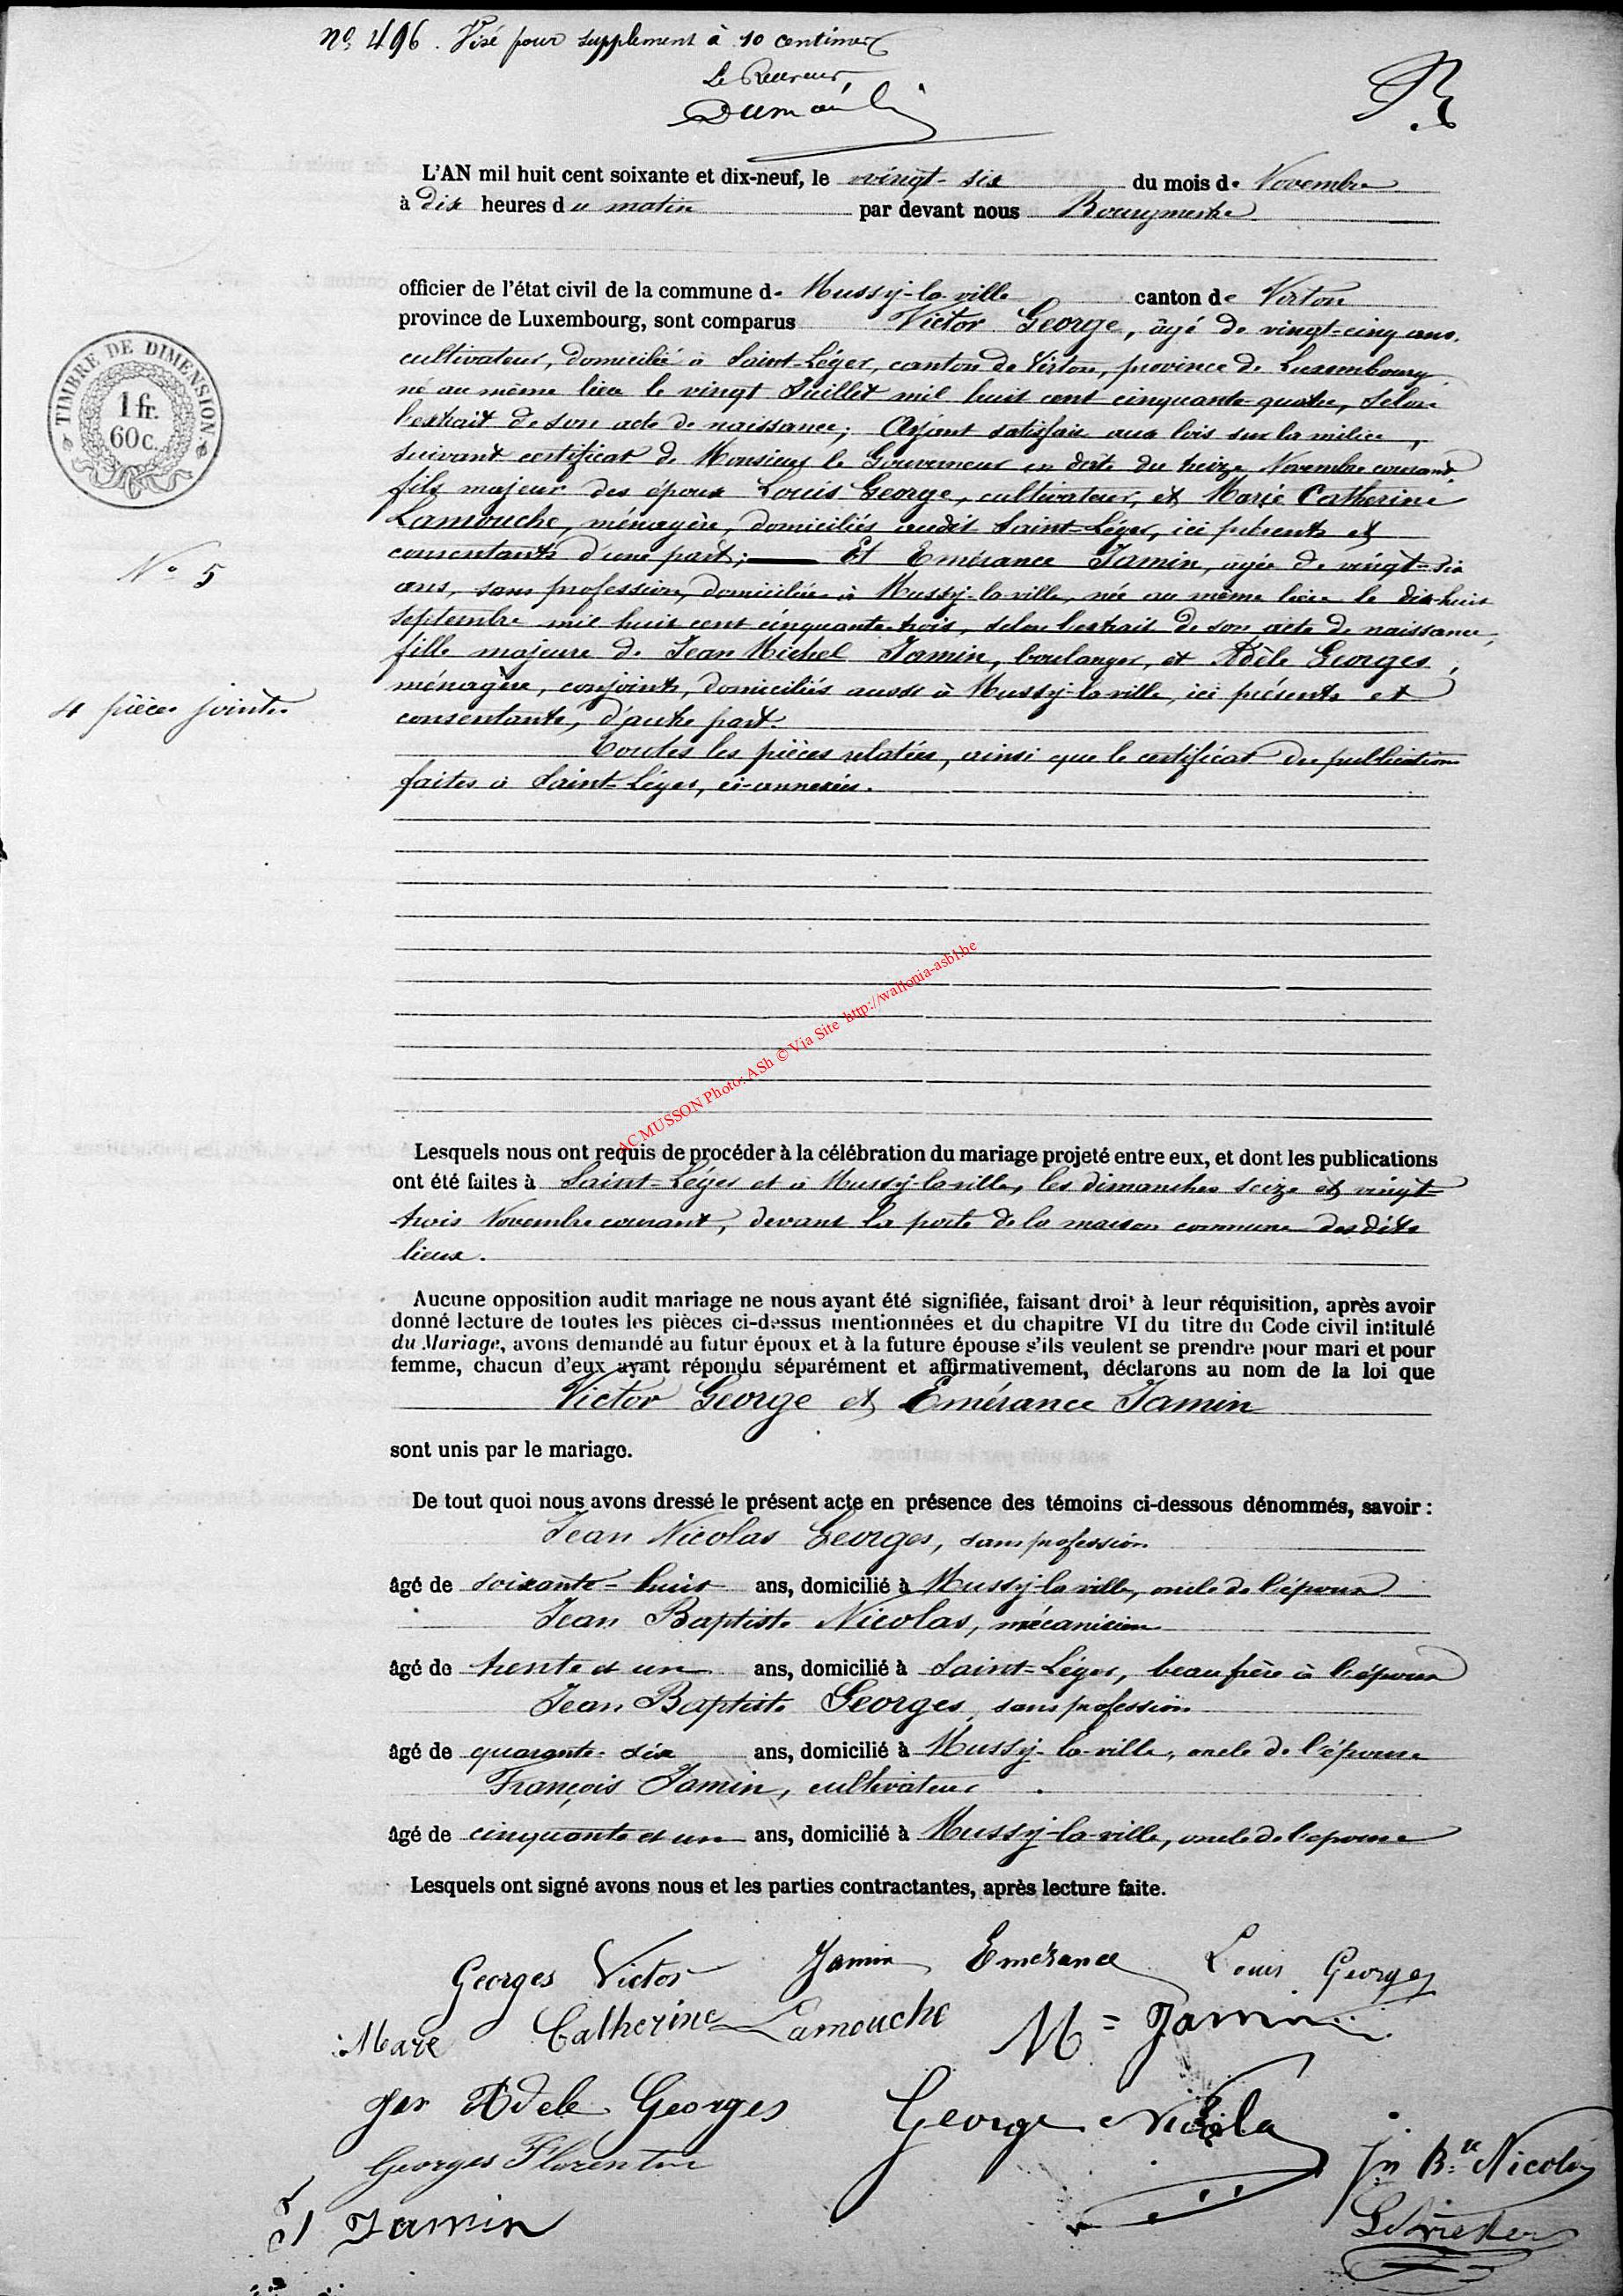 No 496. Visé pour supplement à 10 centimes
Le Receveur,
Dumoulin
L'AN mil huit cent soixante et dix-neuf, le vingt-six du mois de Novembre
à dix heures du matin par devant nous Bourgmestre
officier de l'état civil de la commune de Mussy-la-ville canton de Virton
province de Luxembourg, sont comparus Victor George, âgé de vingt-cinq ans,
cultivateur, domicilié à Saint-Léger, canton de Virton, province de Luxembourg
né au même lieu le vingt Juillet mil huit cent cinquante-quatre, selon
l'extrait de son acte de naissance; Ayant satisfait aux lois sur la milice,
suivant certificat de Monsieur le Gouverneur en date du treize Novembre courant,
fils majeur des époux Louis George, cultivateur, et Marie Catherine
Lamouche, ménagère, domiciliés audit Saint-Léger, ici présents et
consentants d'une part; Et Emérance Jamin, agée de vingt-six
ans, sans profession, domiciliée à Mussy-la-ville, née au même lieu le dix-huit
Septembre mil huit cent cinquante-trois, selon l'extrait de son acte de naissance,
fille majeure de Jean Michel Jamin, boulanger, et Adèle Georges,
ménagère, conjoints, domiciliés aussi à Mussy-la-ville, ici présents et
consentants, d'autre part.
Toutes les pièces relatées, ainsi que le certificat des publications
faites à Saint-Léger, ci-annexées.
TIMBRE DE DIMENSION
1 fr.
60 c.
No 5
4 pièces jointes
AC MUSSON Photo: ASh © Via Site http://wallonia-asbl.be
Lesquels nous ont requis de procéder à la célébration du mariage projeté entre eux, et dont les publications
ont été faites à Saint-Léger et à Mussy-la-ville, les dimanches seize et vingt-
trois Novembre courant, devant la porte de la maison commune des dits
lieux.
Aucune opposition audit mariage ne nous ayant été signifiée, faisant droit à leur réquisition, après avoir
donné lecture de toutes les pièces ci-dessus mentionnées et du chapitre VI du titre du Code civil intitulé
du Mariage, avons demandé au futur époux et à la future épouse s'ils veulent se prendre pour mari et pour
femme, chacun d'eux ayant répondu séparément et affirmativement, déclarons au nom de la loi que
Victor George et Emérance Jamin
sont unis par le mariage.
De tout quoi nous avons dressé le présent acte en présence des témoins ci-dessous dénommés, savoir :
Jean Nicolas Georges, sans profession
âgé de soixante-huit ans, domicilié à Mussy-la-ville, oncle de l'époux
Jean Baptiste Nicolas, mécanicien
âgé de trente et un ans, domicilié à Saint-Léger, beau frère à l'époux
Jean Baptiste Georges, sans profession
âgé de quarante-six ans, domicilié à Mussy-la-ville, oncle de l'épouse
François Jamin, cultivateur
âgé de cinquante et un ans, domicilié à Mussy-la-ville, oncle de l'epouse
Lesquels ont signé avons nous et les parties contractantes, après lecture faite.
Georges Victor Jamin Emérance Louis Georges
Mare Catherine Lamouche M = Jamin
Adele Georges George Nicola
Georges Florentin Jn Bte Nicolas
Jamin